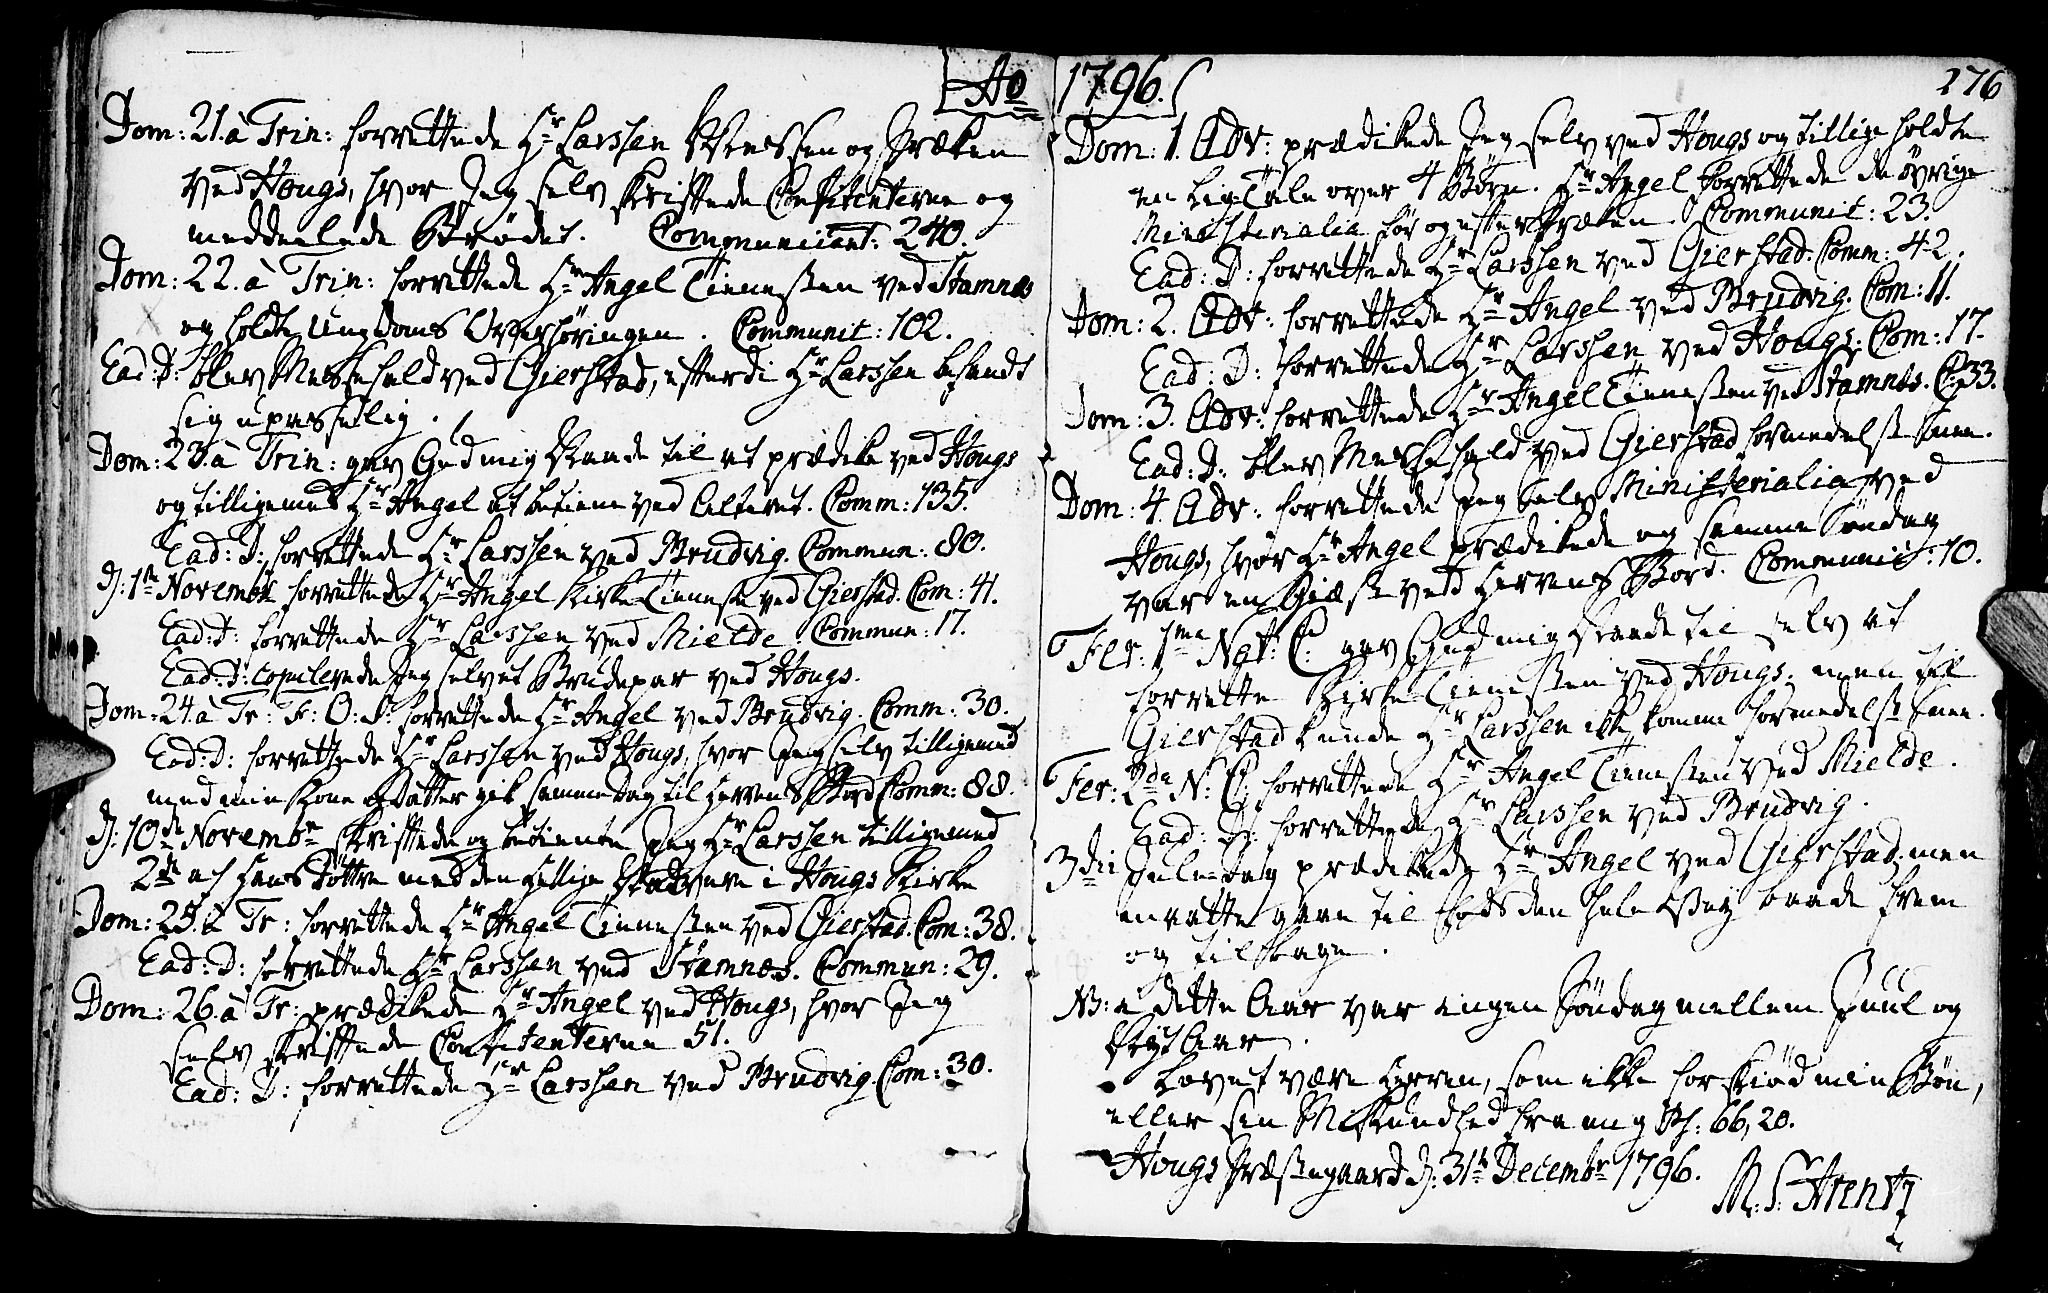 Ao 1796.
276
Dom: 21. à Trin: forrettede Hr Larssen Messen og Præken
ved Hougs, hvor Jeg selv skriftede Confitenterne og
meddeelede Brødet. Communicant: 240.
Dom: 22. à Trin: forrettede Hr Angel Tienesten ved Stamnes
og holdte Ungdoms Overhøringen. Communic: 102.
Ead: D: blev Messefald ved Gierstad, efterdi Hr Larssen befandt
sig upasselig.
Dom: 23. à Trin: gav Gud mig Naade til at prædike ved Hougs
og tilligemed Hr Angel at betiene ved Alteret. Comm: 135.
Ead: D: forrettede Hr Larssen ved Brudvig. Commun: 80.
d: 1te Novembr forrettede Hr Angel KirkeTieneste ved Gierstad. Com: 41.
Ead: D: forrettede Hr Larssen ved Mielde. Commun: 17.
Ead: D: copulerede Jeg selv et Brudepar ved Hougs.
Dom: 24. à Tr: F: O: S: forrettede Hr Angel ved Brudvig. Comm: 30.
Ead: D: forrettede Hr Larssen ved Hougs, hvor Jeg selv tilligemed
med min Kone og Datter gik samme Dag til Herrens Bord Comm: 88.
d: 10de Novembr skriftede og betiente Jeg Hr Larssen tilligemed
2de af hans Døttre med den hellige Nadvere i Hougs Kirke
Dom: 25. à Tr: forrettede Hr Angel Tienesten ved Gierstad. Com: 38.
Ead: D: forrettede Hr Larssen ved Stamnes. Commun: 29.
Dom: 26. à Tr: prædikede Hr Angel ved Hougs, hvor Jeg
selv skriftede Confitenterne 51.
Ead: D: forrettede Hr Larssen ved Brudvig. Com: 30.
Dom: 1. Adv: prædikede Jeg selv ved Hougs og tillige holdte
en LigTale over 4 Børn. Hr Angel forrettede de øvrige
Ministerialia før og efter Præken. Communic: 23.
Ead: D: forrettede Hr Larssen ved Gierstad. Comm: 42.
Dom: 2. Adv: forrettede Hr Angel ved Brudvig. Com: 11.
Ead: D: forrettede Hr Larssen ved Hougs. Com: 17.
Dom: 3. Adv: forrettede Hr Angel Tienesten ved Stamnes. C: 33.
Ead: D: blev Messefald ved Gierstad formedelst Snee.
Dom: 4. Adv: forrettede Jeg selv Ministerialia ved
Hougs, hvor Hr Angel prædikede og samme Søndag
var en Giæst ved Herrens Bord. Communic: 10.
Fer: 1ma Nat: C: gav Gud mig Naade til selv at
forrette KirkeTienesten ved Hougs, men til
Gierstad kunde Hr Larssen ikke komme formedelst Snee.
Fer: 2da N: C: forrettede Hr Angel Tienesten ved Mielde.
Ead: D: forrettede Hr Larssen ved Brudvig.
3die Jule-Dag prædikede Hr Angel ved Gierstad, men
maatte gaae til Fods den hele Vey baade frem
og tilbage.
NB: i dette Aar var ingen Søndag mellem Juul og
Nyt Aar.
Lovet være Herren, som ikke forskiød min Bøn,
eller sin Miskundhed fra mig Ps: 66, 20.
Hougs Præstegaard d: 31te Decembr 1796.
M. S. Arentz